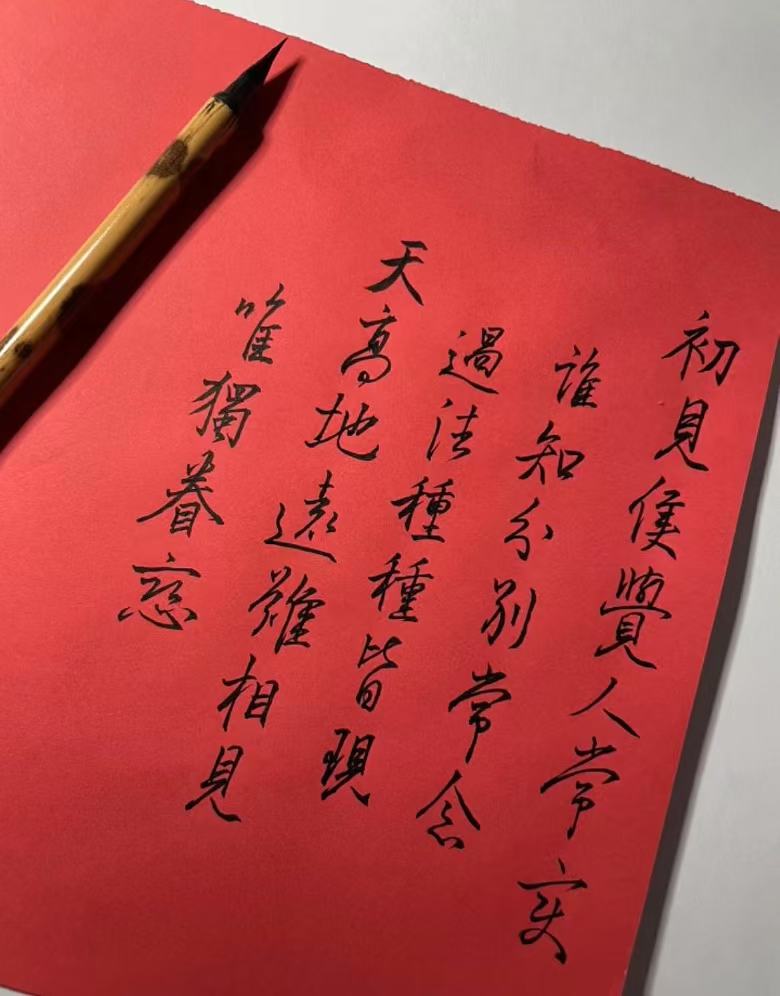 初見覺人常
誰知分别常念
過往種種皆現
天高地遠難相見
唯獨眷恋